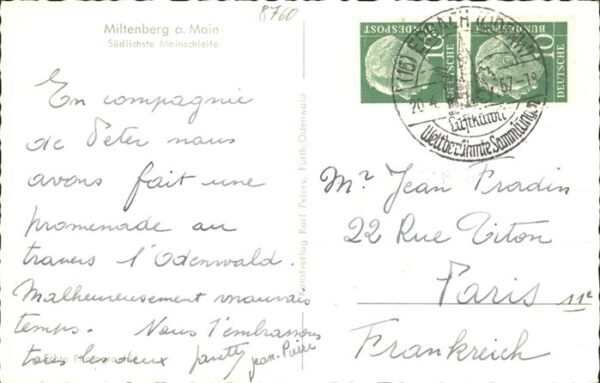 Miltenberg a. Main
Südlichste Mainschleife
8760
En compagnie
de Peter nous
avons fait une
promenade au
travers l'Odenwald.
Malheureusement mauvais
temps. Nous l'embrassons
tous les deux
Jean-Pierre
Kunstverlag Karl Peters, Fürth-Odenwald
DEUTSCHE BUNDESPOST
10
DEUTSCHE BUNDESPOST
10
(16) ERBACH (ODENW)
20.4.57-18
Luftkurort
Weltberühmte Sammlungen
Mr Jean Fradin
22 Rue Titon
Paris 11e
Frankreich